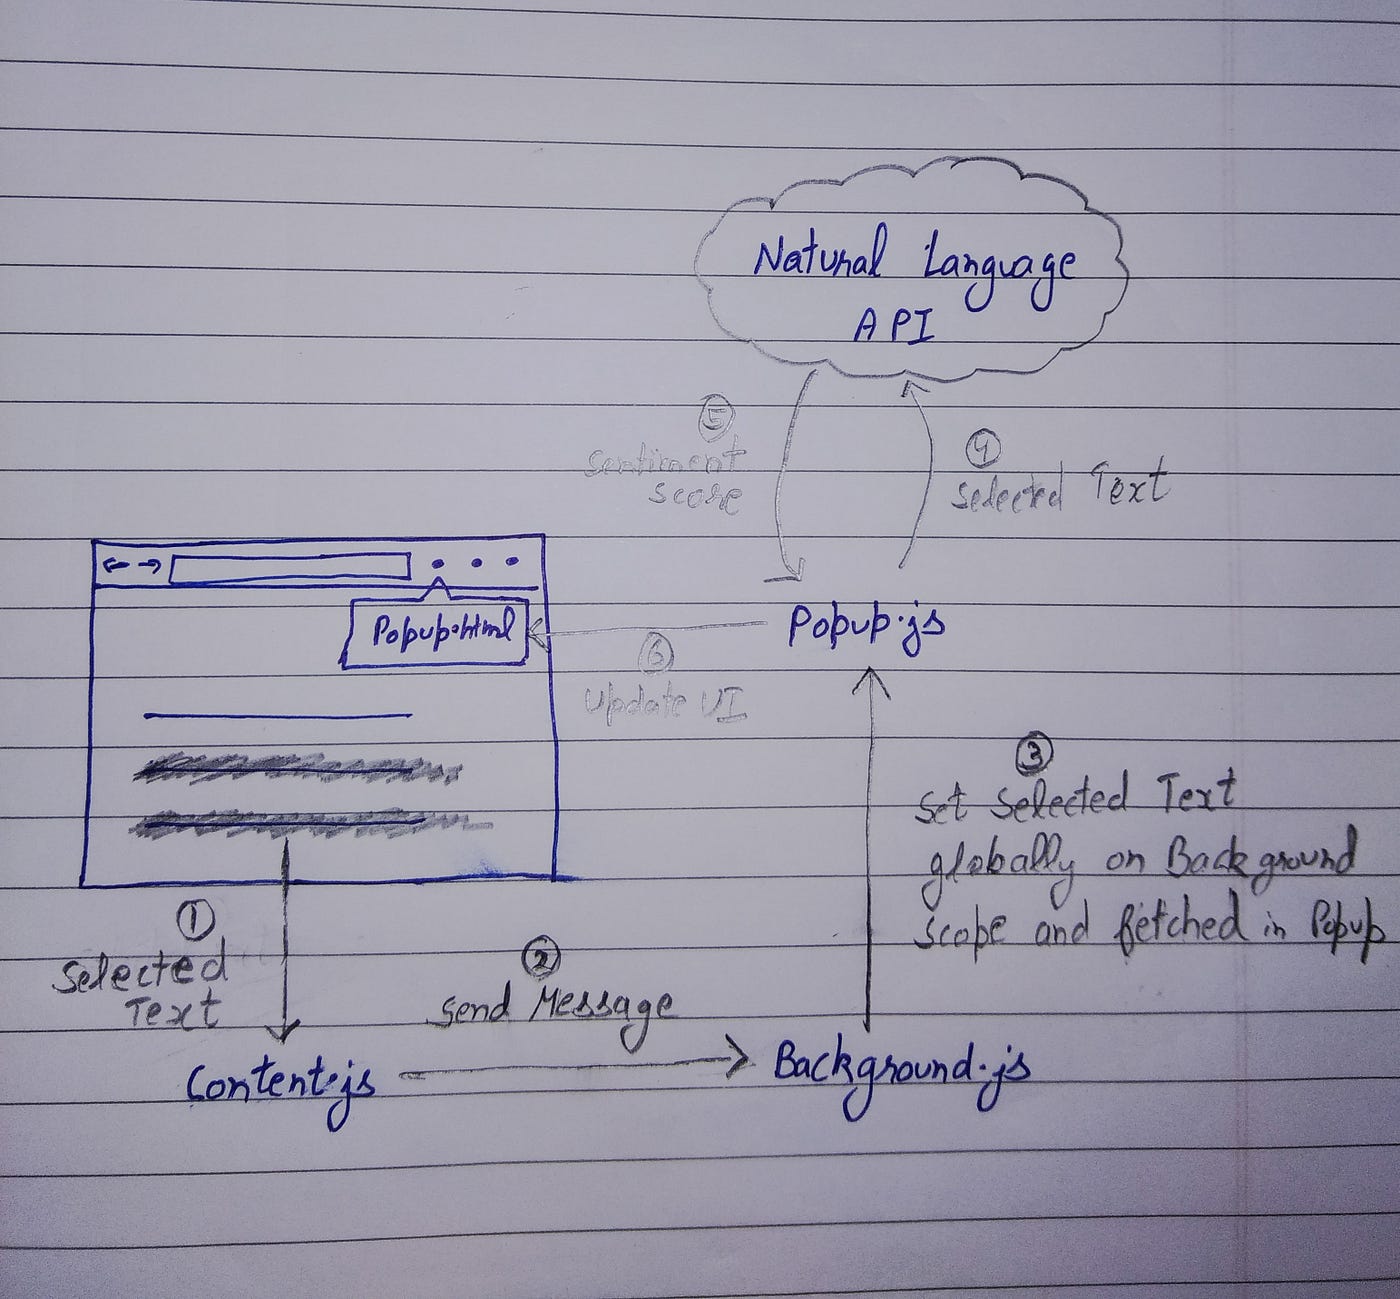 Natural Language
API
⑤
Sentiment
score
④
Selected Text
Popup.html
Popup.js
⑥
Update UI
③
Set Selected Text
globally on Background
scope and fetched in Popup
①
Selected
Text
②
Send Message
Content.js
Background.js